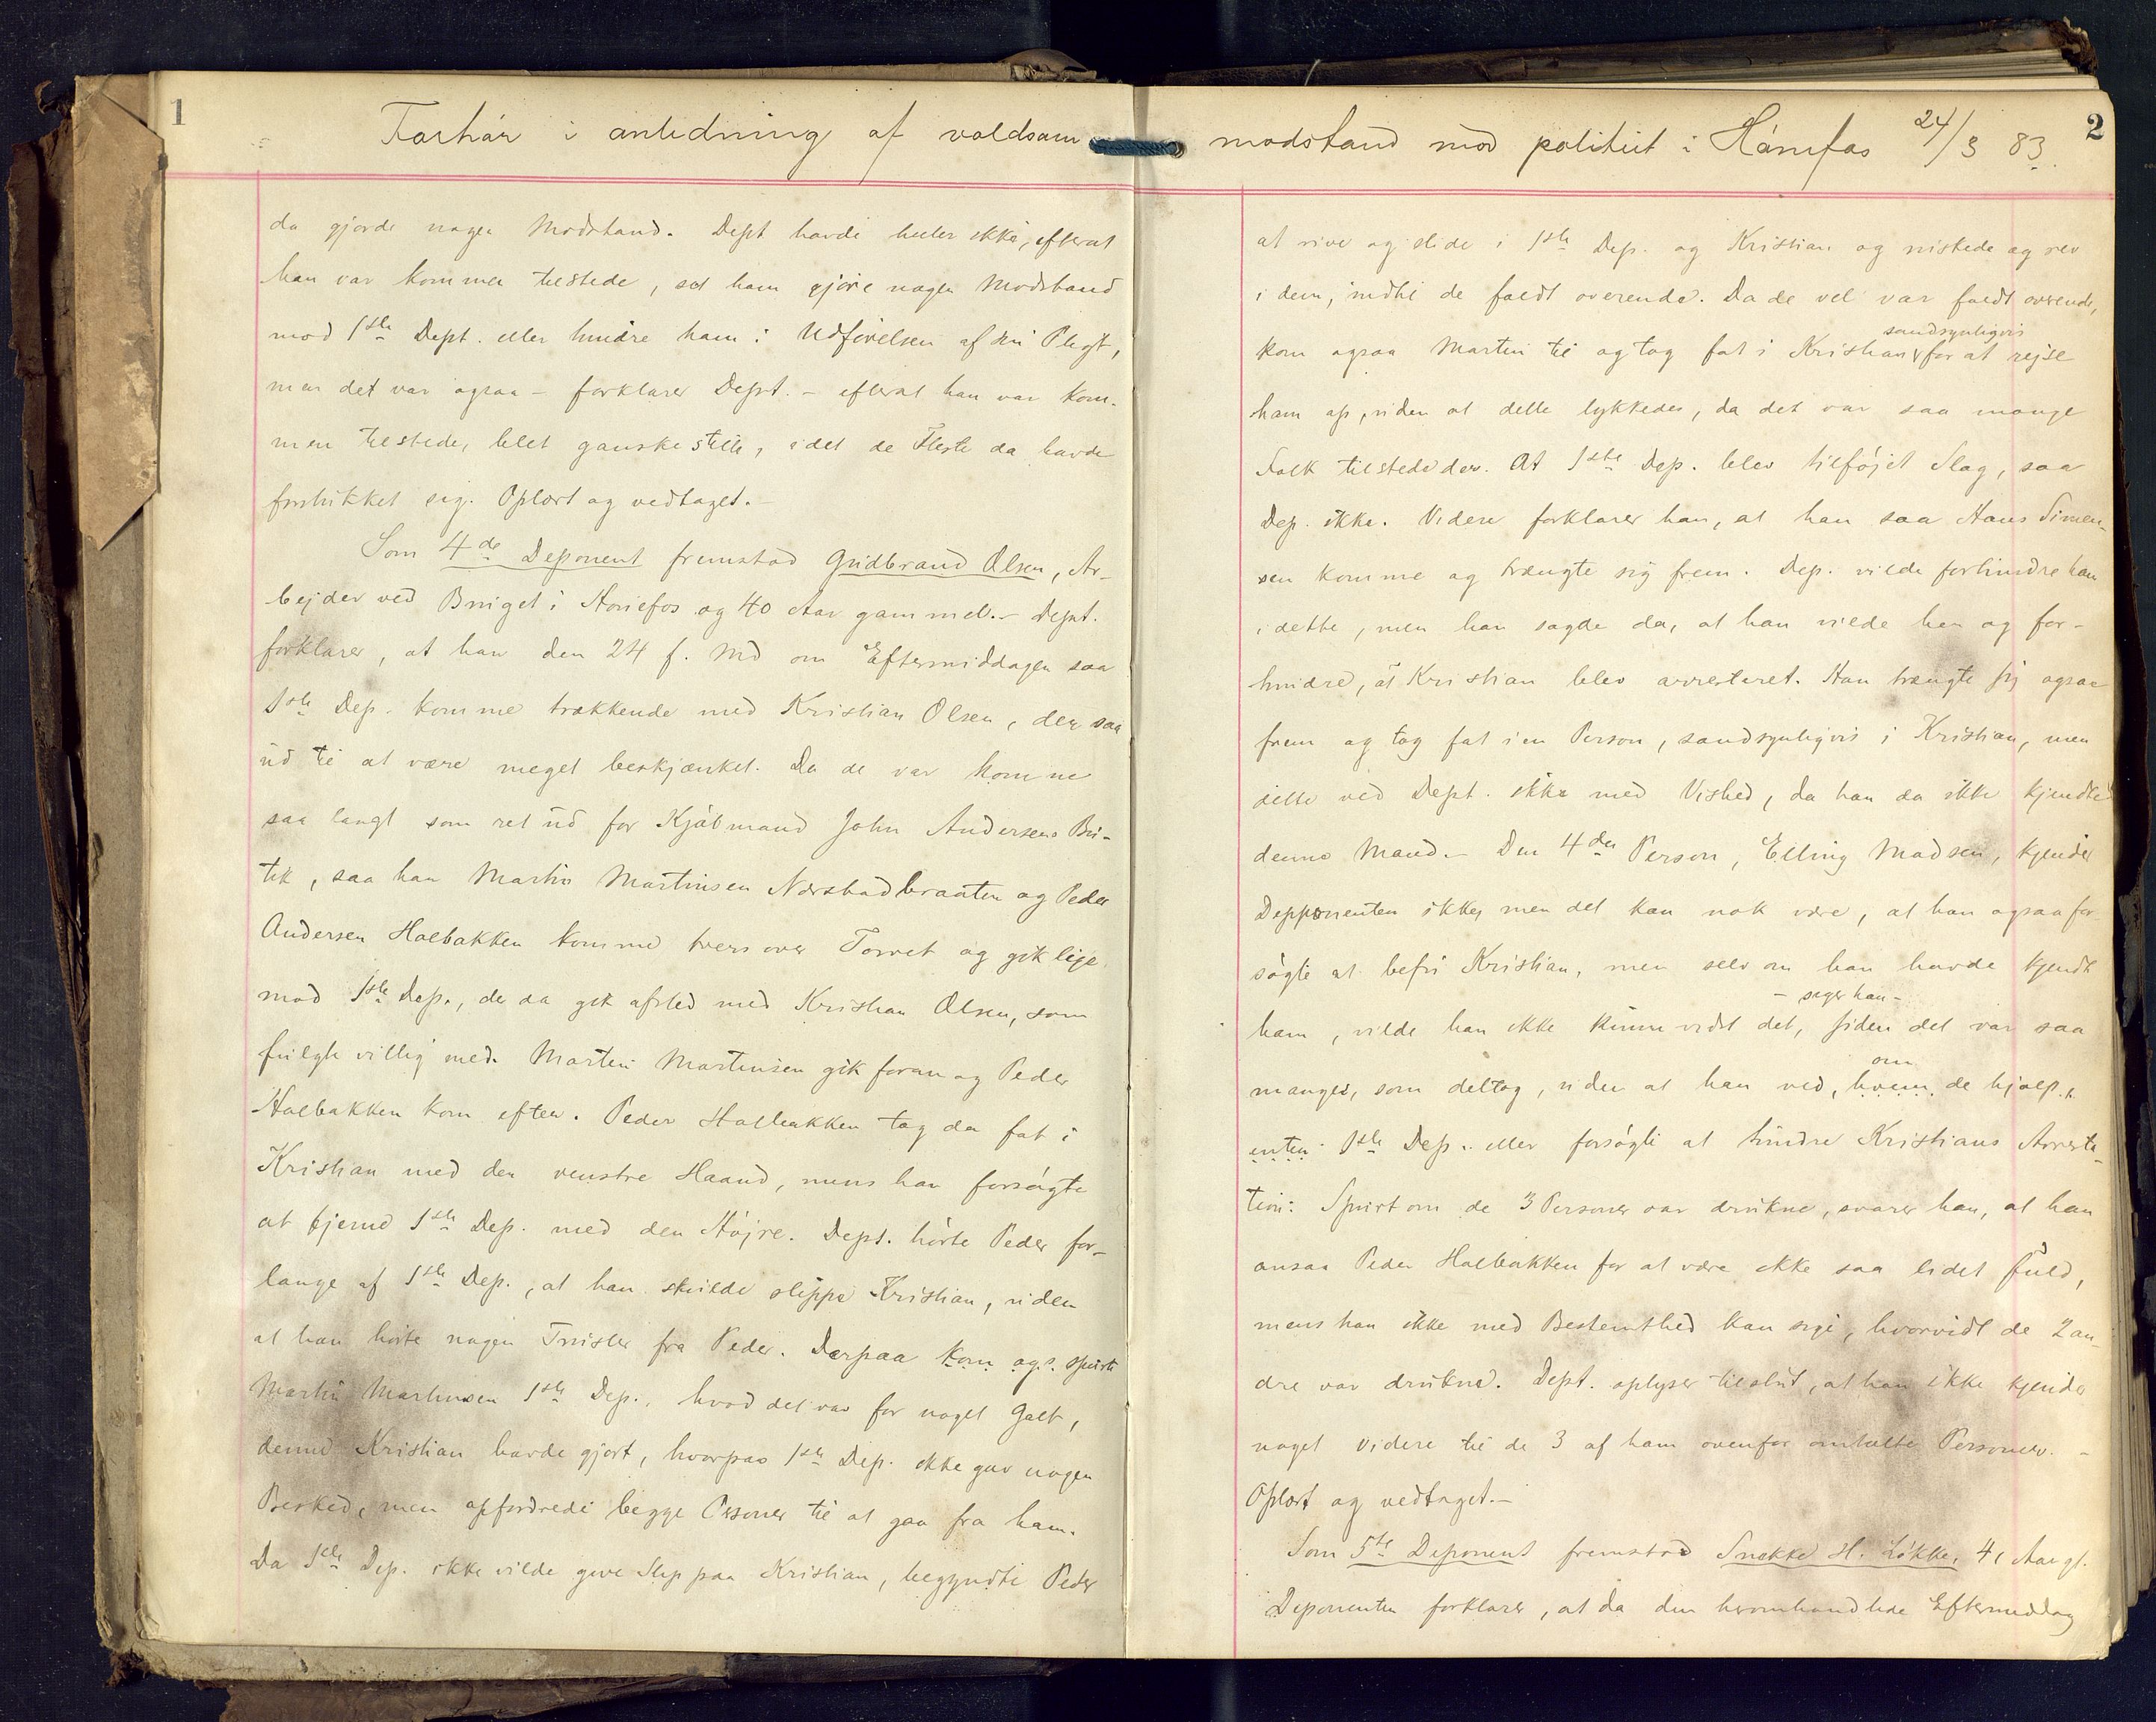 1
Forhør i anledning af voldsom modstand mod politiet i Hønefos 24/3 83.
2
da gjorde nogen Modstand. Dept havde heller ikke, efterat
han var kommen tilstede, set ham gjøre nogen Modstand
mod 1ste Dept. eller hindre ham i Udførelsen af sin Pligt,
men det var ogsaa – forklarer Dept. – efterat han var kom-
men tilstede, blet ganske stille, idet de Fleste da havde
forstukket sig. Oplæst og vedtaget. –
Som 4de Deponent fremstod Gudbrand Olsen, Ar-
bejder ved Bruget i Hønefos og 40 Aar gammel. – Dept.
forklarer, at han den 24 f. Md om Eftermiddagen saa
1ste Dep. komme trækkende med Kristian Olsen, der saa
ud til at være meget beskjænket. Da de var komne
saa langt som ret ud for Kjøbmand John Andersens Bu-
tik, saa han Martin Martinsen Nærstadbraaten og Peder
Andersen Halbakken komme tvers over Torvet og gik lige
mod 1ste Dep., der da gik afsted med Kristian Olsen, som
fulgte villig med. Martin Martinsen gik foran og Peder
Halbakken kom efter. Peder Halbakken tog da fat i
Kristian med den venstre Haand, mens han forsøgte
at fjerne 1ste Dep. med den Højre. Dept. hørte Peder for-
lange af 1ste Dep., at han skulde slippe Kristian, uden
at han hørte nogen Trusler fra Peder. Derpaa kom ogs. spurte
Martin Martinsen 1ste Dep., hvad det var for noget Galt,
denne Kristian havde gjort, hvorpaa 1ste Dep. ikke gav nogen
Besked, men opfordrede begge Personer til at gaa fra ham.
Da 1ste Dep. ikke vilde give Slip paa Kristian, begyndte Peder
at rive og slide i 1ste Dep. og Kristian og ristede og rev
i dem, indtil de faldt overende. Da de vel var faldt overende,
sandsynligvis
kom ogsaa Martin til og tog fat i Kristian for at rejse
ham op, uden at dette lykkedes, da det var saa mange
Folk tilstede der. At 1ste Dep. blev tilføjet Slag, saa
Dep. ikke. Videre forklarer han, at han saa Hans Simen-
sen komme og trængte sig frem. Dep. vilde forhindre ham
i dette, men han sagde da, at han vilde hen og for-
hindre, at Kristian blev arresteret. Han trængte sig ogsaa
frem og tog fat i en Person, sandsynligvis i Kristian, men
dette ved Dept. ikke med Vished, da han da ikke kjendte
denne Mand. – Den 4de Person, Elling Madsen, kjender
Depponenten ikke, men det kan nok være, at han ogsaa for-
søgte at befri Kristian, men selv om han havde kjendt
– siger han –
ham, vilde han ikke kunne vidst det, siden det var saa
om
mange, som deltog, uden at han ved, hvem de hjalp
enten 1ste Dep. eller forsøgte at hindre Kristians Arresta-
tion. Spurt om de 3 Personer var drukne, svarer han, at han
ansaa Peder Halbakken for at være ikke saa lidet fuld,
mens han ikke med Bestemthed kan sige, hvorvidt de 2 an-
dre var drukne. Dept. oplyser tilslut, at han ikke kjender
noget videre til de 3 af ham ovenfor omtalte Personer. –
Oplæst og vedtaget. –
Som 5te Deponent fremstod H. Løkke, 41 Aar gl.
Deponenten forklarer, at da den heromhandlede Eftermiddag